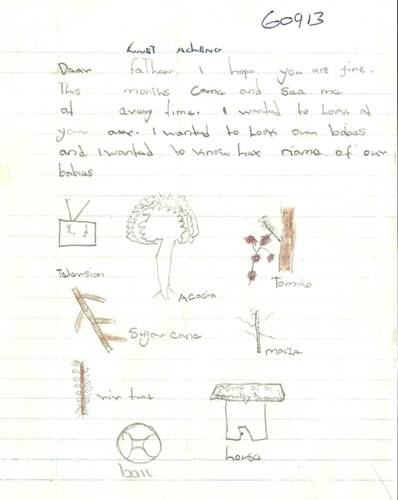 60913
Linet Achieng
Daar father. I hope you are fine.
This months Came and Saa me
at every time. I wanted to Look at
your aax. I wanted to Look own babas
and I wanted to know hax name of our
babies
Talavision
Acacia
Tomoto
Sugar cana
maiza
traa
housa
ball